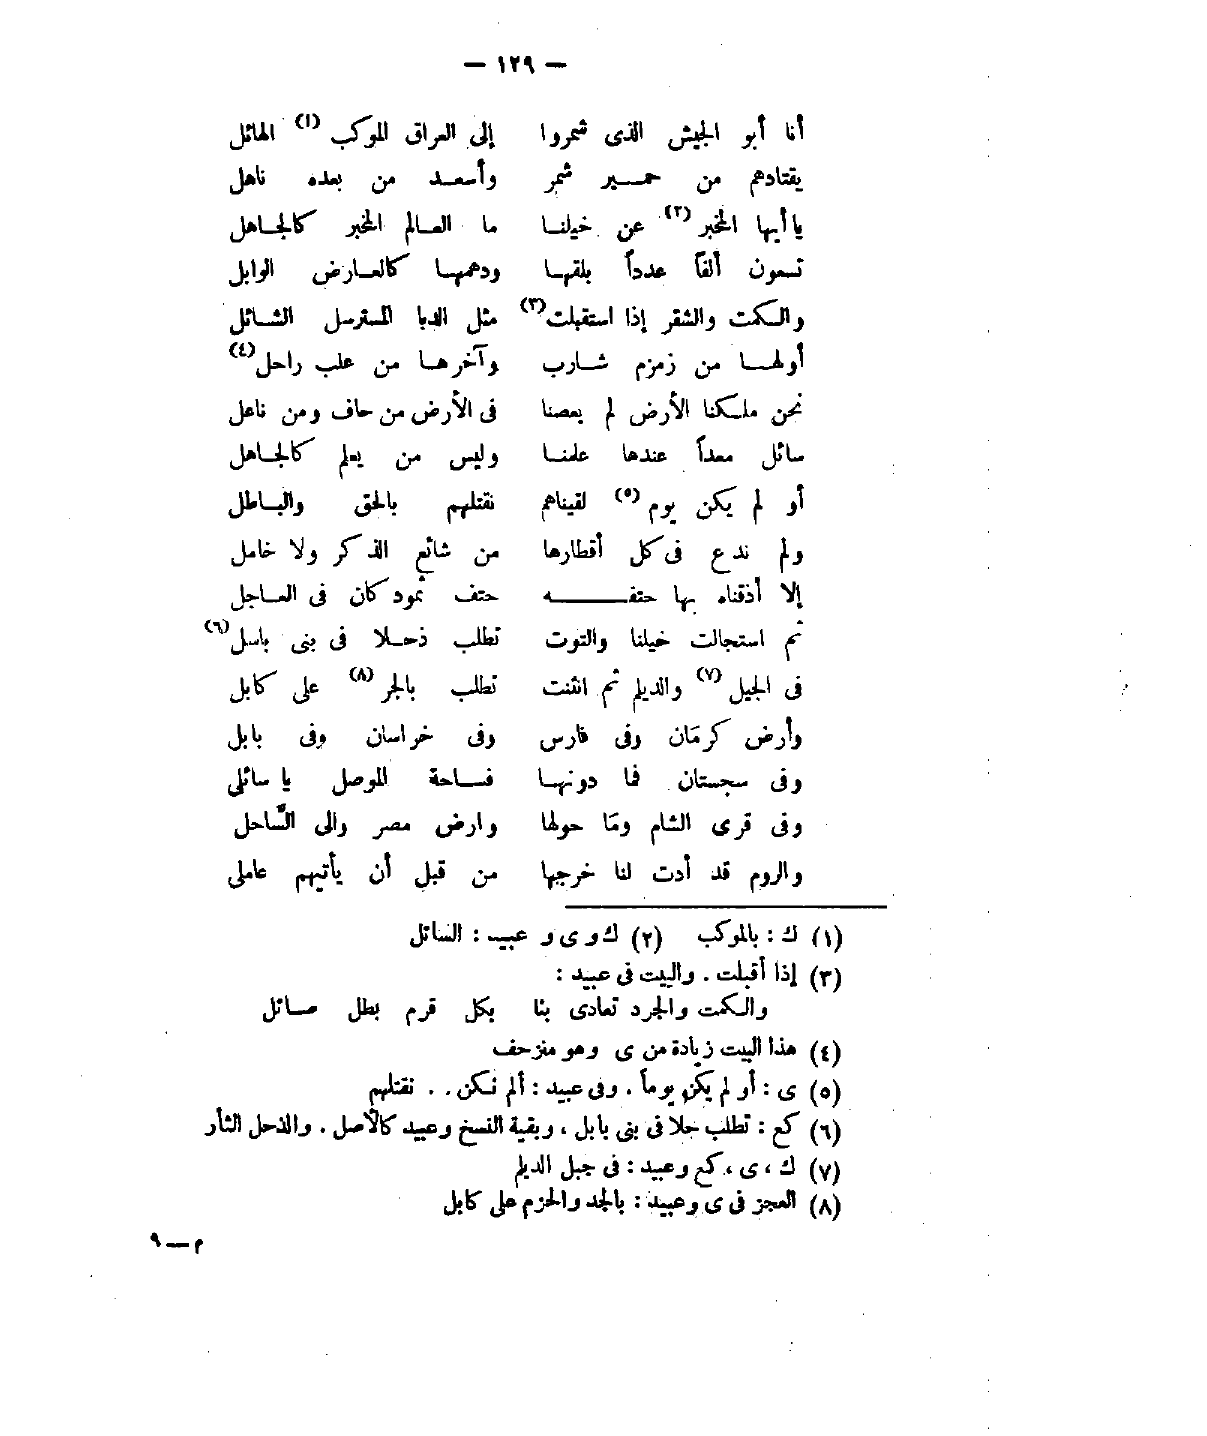 — ١٢٩ —
أنا أبو الجيش الذى شمروا إلى العراق الموكب (١) الهائل
يقتادهم من حمــير شمر وأسعــد من بعده ناهل
يا أيها المخبر (٢) عن خيلنــا ما العــالم المخبر كالجــاهل
تسعون ألفاً عدداً بلقهــا ودهمهــا كالعــارض الوابل
والــكمت والشقر إذا استقبلت (٣) مثل الدبا المسترسل الشــائل
أولهــا من زمزم شــارب وآخرهــا من علب راحل (٤)
نحن ملــكنا الأرض لم يعصنا فى الأرض من حاف ومن ناعل
سائل معداً عندها علمنــا وليس من يعلم كالجــاهل
أو لم يكن يوم (٥) لقيناهم نقتلهم بالحق والبــاطل
ولم ندع فى كل أقطارها من شائع الذكر ولا خامل
إلا أذقناه بها حتفــــه حتف ثمود كان فى العــاجل
ثم استجالت خيلنا والتوت تطلب ذحــلا فى بنى باسل (٦)
فى الجيل (٧) والديلم ثم انثنت تطلب بالجر (٨) على كابل
وأرض كرمَان وفى فارس وفى خراسان وفى بابل
وفى سجستان فما دونهــا فســاحة الموصل يا سائلى
وفى قرى الشام ومَا حولها وارض مصر والى السَّاحل
والروم قد أدت لنا خرجها من قبل أن يأتيهم عاملى
(١) ك : بالموكب (٢) ك و ى و عبيد : السائل
(٣) إذا أقبلت . والبيت فى عبيد :
والــكمت والجرد تعادى بنا بكل قرم بطل صــائل
(٤) هذا البيت زيادة من ى وهو منزحف
(٥) ى : أو لم يكن يوماً . وفى عبيد : ألم نكن . . نقتلهم
(٦) كع : تطلب جلا فى بنى بابل ، وبقية النسخ وعبيد كالأصل . والذحل الثأر
(٧) ك ، ى ، كع وعبيد : فى جبل الديلم
(٨) العجز فى ى وعبيد : بالجد والحزم على كابل
م — ٩